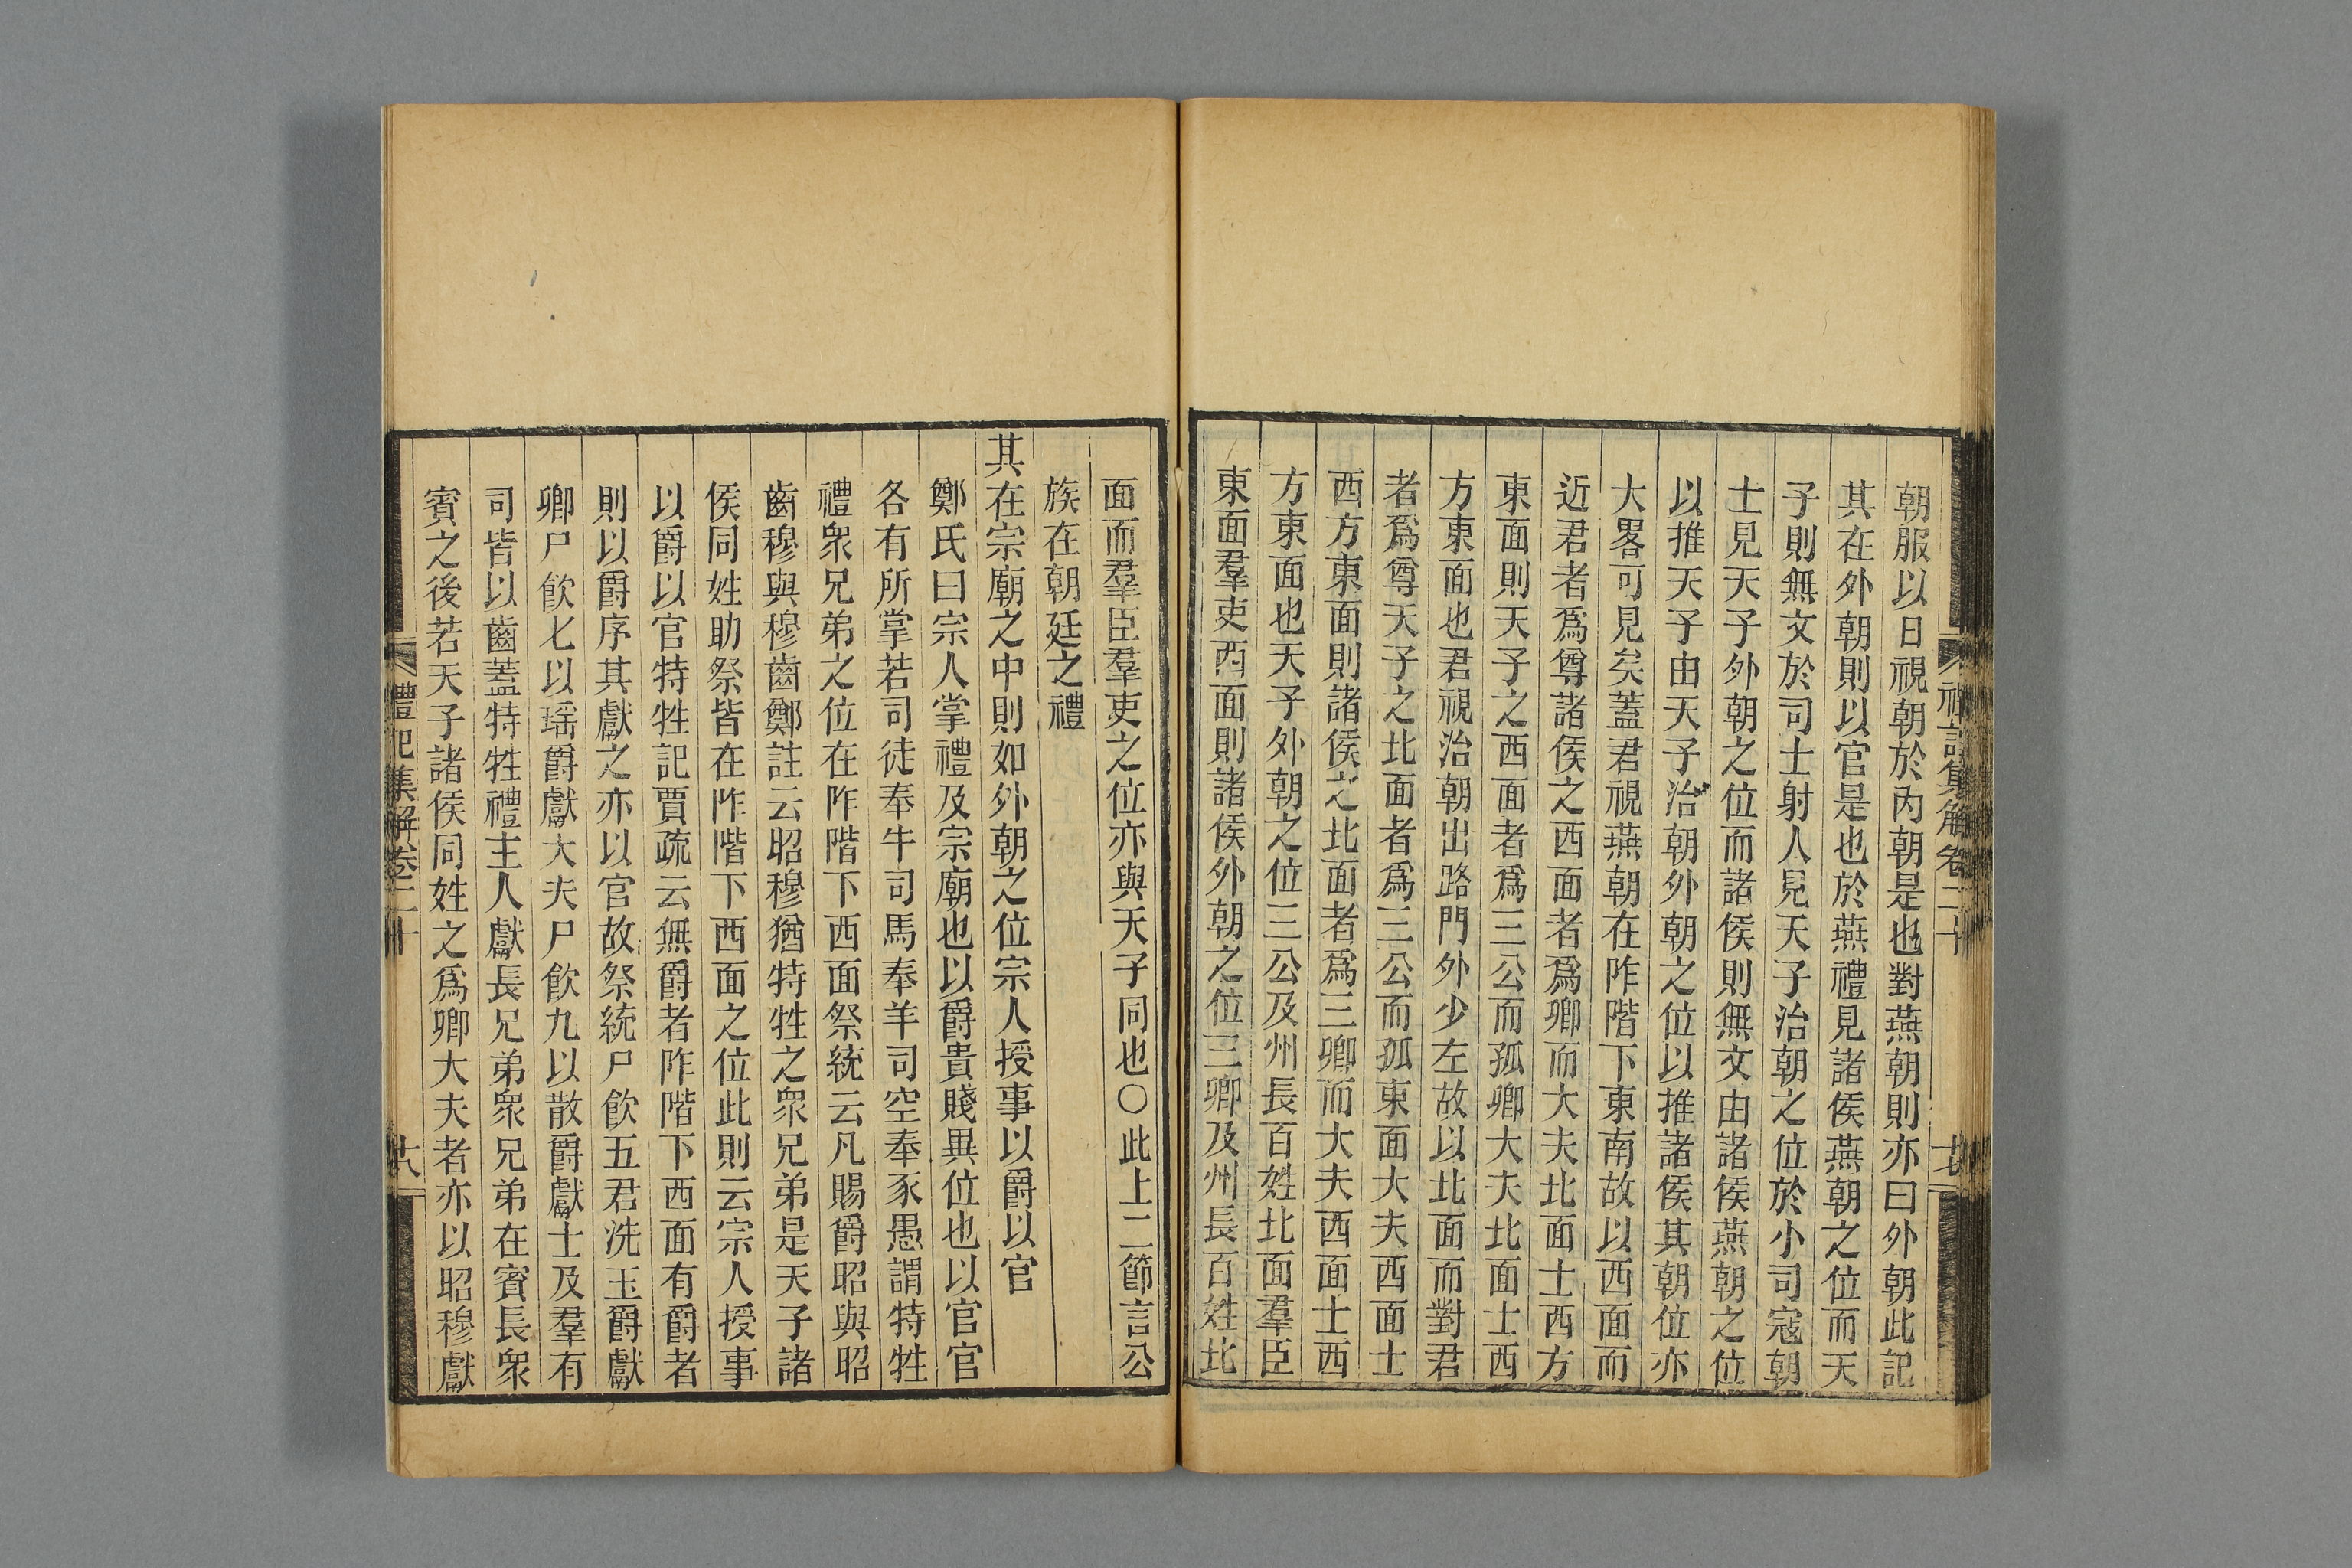 朝服以日視朝於內朝是也對燕朝則亦曰外朝此記
其在外朝則以官是也於燕禮見諸侯燕朝之位而天
子則無文於司士射人見天子治朝之位於小司寇朝
士見天子外朝之位而諸侯則無文由諸侯燕朝之位
以推天子由天子治朝外朝之位以推諸侯其朝位亦
大畧可見矣蓋君視燕朝在阼階下東南故以西面而
近君者爲尊諸侯之西面者爲卿而大夫北面士西方
東面則天子之西面者爲三公而孤卿大夫北面士西
方東面也君視治朝出路門外少左故以北面而對君
者爲尊天子之北面者爲三公而孤東面大夫西面士
西方東面則諸侯之北面者爲三卿而大夫西面士西
方東面也天子外朝之位三公及州長百姓北面羣臣
東面羣吏西面則諸侯外朝之位三卿及州長百姓北
禮記集解卷二十
面而羣臣羣吏之位亦與天子同也○此上二節言公
族在朝廷之禮
其在宗廟之中則如外朝之位宗人授事以爵以官
鄭氏曰宗人掌禮及宗廟也以爵貴賤異位也以官官
各有所掌若司徒奉牛司馬奉羊司空奉豕愚謂特牲
禮衆兄弟之位在阼階下西面祭統云凡賜爵昭與昭
齒穆與穆齒鄭註云昭穆猶特牲之衆兄弟是天子諸
侯同姓助祭皆在阼階下西面之位此則云宗人授事
以爵以官特牲記賈疏云無爵者阼階下西面有爵者
則以爵序其獻之亦以官故祭統尸飮五君洗玉爵獻
卿尸飮七以瑶爵獻大夫尸飮九以散爵獻士及羣有
司皆以齒蓋特牲禮主人獻長兄弟衆兄弟在賓長衆
賓之後若天子諸侯同姓之爲卿大夫者亦以昭穆獻
禮記集解卷二十
大